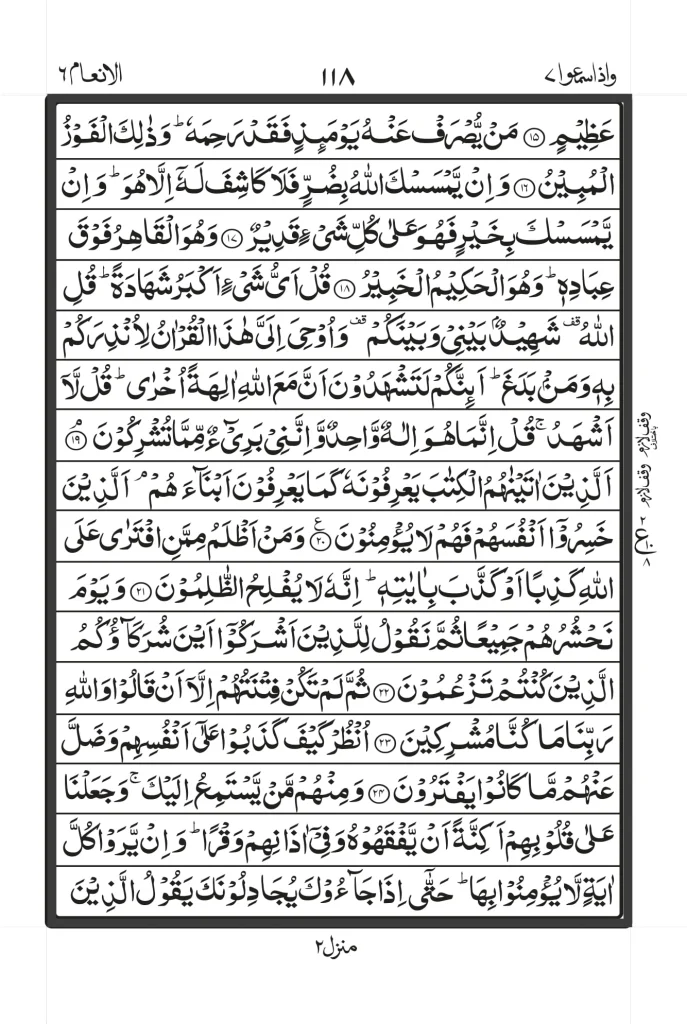 واذاسمعوا ٧ ١١٨ الانعام ٦
عَظِيْمٍ ۝١٥ مَنْ يُّصْرَفْ عَنْهُ يَوْمَئِذٍ فَقَدْ رَحِمَهٗ ؕ وَذٰلِكَ الْفَوْزُ
الْمُبِيْنُ ۝١٦ وَاِنْ يَّمْسَسْكَ اللّٰهُ بِضُرٍّ فَلَا كَاشِفَ لَهٗۤ اِلَّا هُوَ ؕ وَاِنْ
يَّمْسَسْكَ بِخَيْرٍ فَهُوَ عَلٰى كُلِّ شَىْءٍ قَدِيْرٌ ۝١٧ وَهُوَ الْقَاهِرُ فَوْقَ
عِبَادِهٖ ؕ وَهُوَ الْحَكِيْمُ الْخَبِيْرُ ۝١٨ قُلْ اَىُّ شَىْءٍ اَكْبَرُ شَهَادَةً ؕ قُلِ
اللّٰهُ قف شَهِيْدٌۢ بَيْنِىْ وَبَيْنَكُمْ قف وَاُوْحِىَ اِلَىَّ هٰذَا الْقُرْاٰنُ لِاُنْذِرَكُمْ
بِهٖ وَمَنْۢ بَلَغَ ؕ اَئِنَّكُمْ لَتَشْهَدُوْنَ اَنَّ مَعَ اللّٰهِ اٰلِهَةً اُخْرٰى ؕ قُلْ لَّاۤ
اَشْهَدُ ۚ قُلْ اِنَّمَا هُوَ اِلٰهٌ وَّاحِدٌ وَّاِنَّنِىْ بَرِىْٓءٌ مِّمَّا تُشْرِكُوْنَ ۝١٩ۘ
اَلَّذِيْنَ اٰتَيْنٰهُمُ الْكِتٰبَ يَعْرِفُوْنَهٗ كَمَا يَعْرِفُوْنَ اَبْنَآءَهُمْ ۘ اَلَّذِيْنَ
خَسِرُوْۤا اَنْفُسَهُمْ فَهُمْ لَا يُؤْمِنُوْنَ ۝٢٠ ع وَمَنْ اَظْلَمُ مِمَّنِ افْتَرٰى عَلَى
اللّٰهِ كَذِبًا اَوْ كَذَّبَ بِاٰيٰتِهٖ ؕ اِنَّهٗ لَا يُفْلِحُ الظّٰلِمُوْنَ ۝٢١ وَيَوْمَ
نَحْشُرُهُمْ جَمِيْعًا ثُمَّ نَقُوْلُ لِلَّذِيْنَ اَشْرَكُوْۤا اَيْنَ شُرَكَآؤُكُمُ
الَّذِيْنَ كُنْتُمْ تَزْعُمُوْنَ ۝٢٢ ثُمَّ لَمْ تَكُنْ فِتْنَتُهُمْ اِلَّاۤ اَنْ قَالُوْا وَاللّٰهِ
رَبِّنَا مَا كُنَّا مُشْرِكِيْنَ ۝٢٣ اُنْظُرْ كَيْفَ كَذَبُوْا عَلٰٓى اَنْفُسِهِمْ وَضَلَّ
عَنْهُمْ مَّا كَانُوْا يَفْتَرُوْنَ ۝٢٤ وَمِنْهُمْ مَّنْ يَّسْتَمِعُ اِلَيْكَ ۚ وَجَعَلْنَا
عَلٰى قُلُوْبِهِمْ اَكِنَّةً اَنْ يَّفْقَهُوْهُ وَفِىْۤ اٰذَانِهِمْ وَقْرًا ؕ وَاِنْ يَّرَوْا كُلَّ
اٰيَةٍ لَّا يُؤْمِنُوْا بِهَا ؕ حَتّٰٓى اِذَا جَآءُوْكَ يُجَادِلُوْنَكَ يَقُوْلُ الَّذِيْنَ
وقف لازم
وقف لازم
منزل ٢